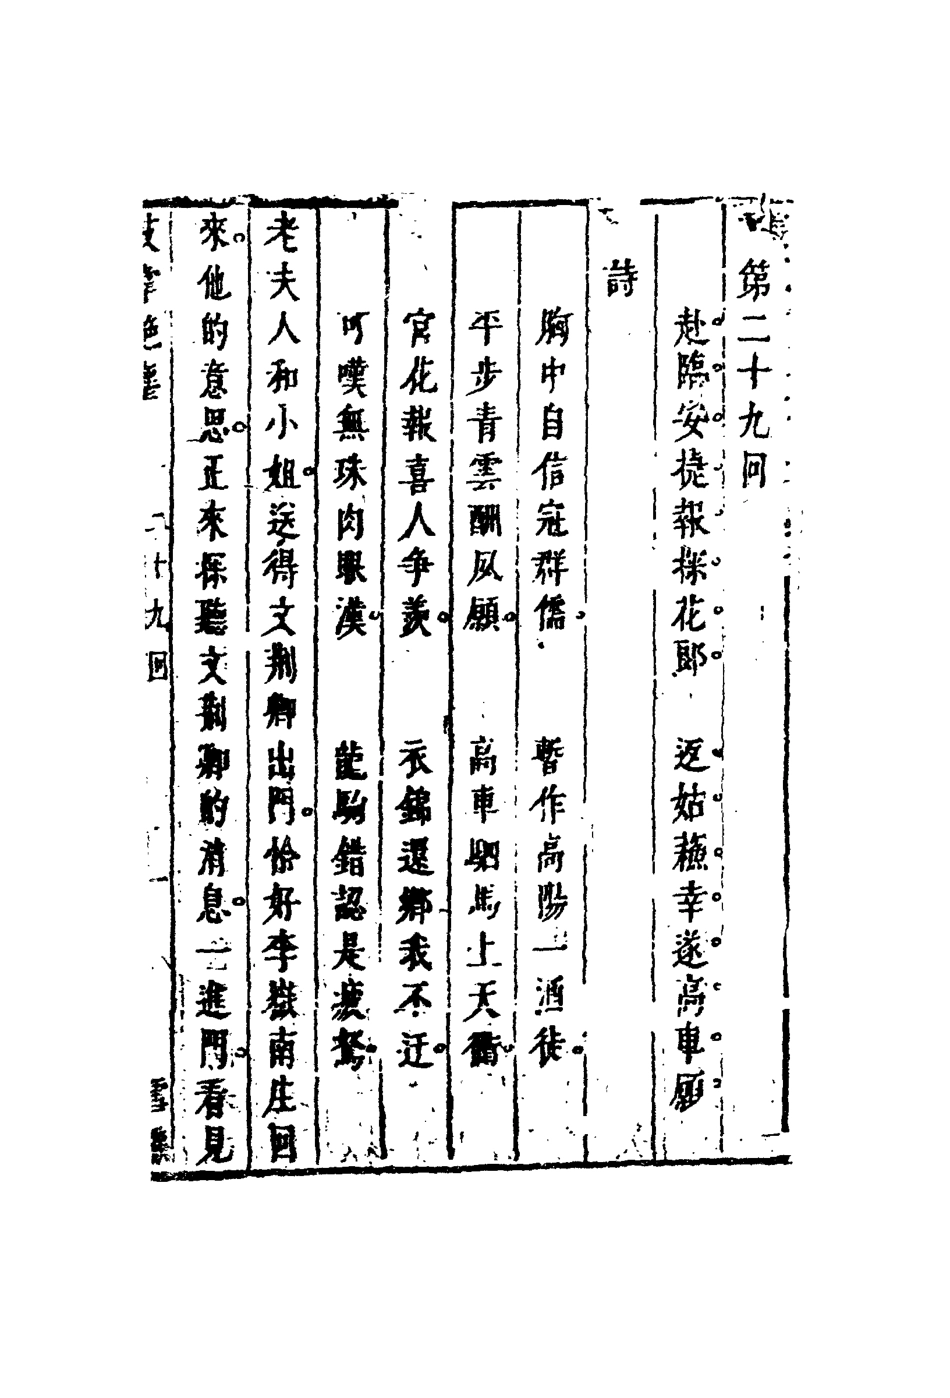 第二十九回
赴臨安捷報探花郎　返姑蘓幸遂高車願
詩
胸中自信冠群儒　暫作高陽一酒徒
平步青雲酬夙願　高車駟馬上天衢
官花報喜人争羨　衣錦還鄉我不迂
可嘆無珠肉眼漢　龍駒錯認是疲駑
老夫人和小姐送得文荆卿出門恰好李嶽南庄回
來他的意思正來探聽文荆卿的消息一進門看見
二十九回　一